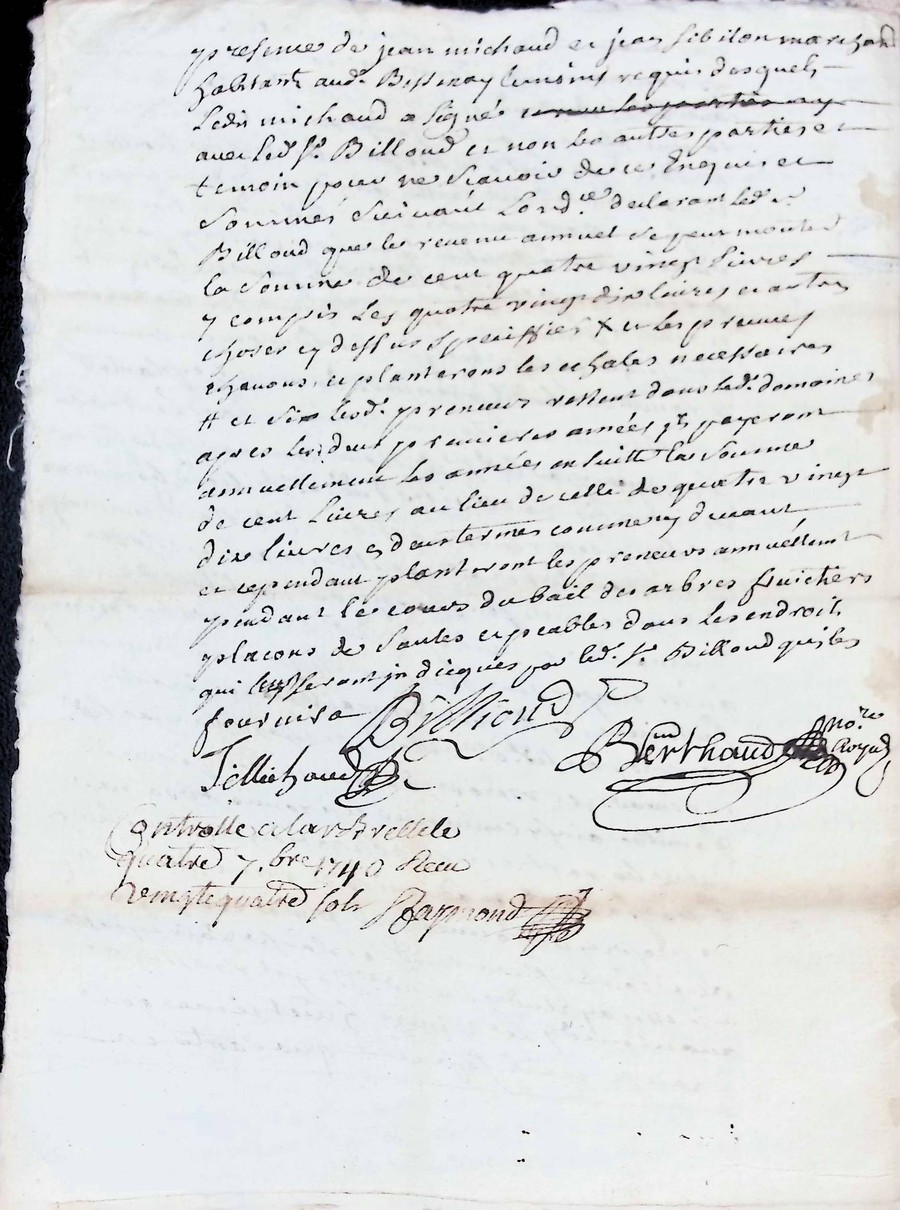 presence de jean michaud et jean sibilon marchand
habitant aud. Bessenay temoins requis desquels
ledit michaud a signé
avec led. Sr. Billoud et non les autres parties et
temoin pour ne scavoir de ce Enquis et
sommés suivant Lord.ce declarant led. Sr
Billoud que le revenu annuel se peut monter
la somme de cent quatre vingt livres
y compris Les quatre vingt dix livres et autres
choses cy dessus speciffiés X et les preneurs
et planterons les echalas necessaires
# et si lesd. preneurs restent dans led. domaine
apres les deux premieres années ils payeront
annuellement les années ensuitte la somme
de cent Livres au lieu de celle de quatre vingt
dix livres es dans termes comme cy devant
et cependant planteront les preneurs annuellemt
pendant le cours du bail des arbres fruictiers
placons de saules et peables dans les endroit
qui leurs seront jndicqués par led. Sr. Billoud qui les
fournira Billioud
J Michaud Berthaud no.re Royal
Controllé a larbrelle le
quatre 7.bre 1740 Receu
vingt quatre sols Raymond